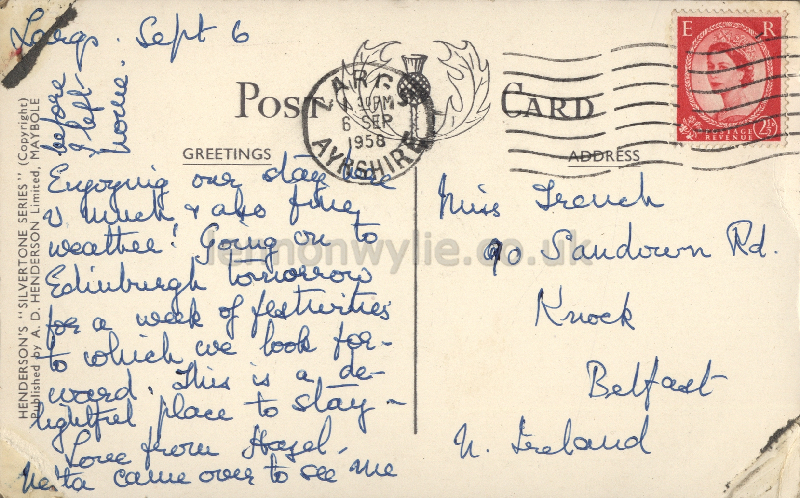 Largs. Sept 6
Enjoying our stay here
v much & also fine
weather! Going on to
Edinburgh tomorrow
for a week of festivities
to which we look for-
ward. This is a de-
lightful place to stay -
Love from Hazel.
Neta came over to see me
before
I left
home.
POST CARD
GREETINGS
ADDRESS
LARGS
PM
6 SEP
1958
AYRSHIRE
E R
POSTAGE
REVENUE
2½D
Miss Trench
90 Sandown Rd.
Knock
Belfast
N. Ireland
HENDERSON'S "SILVERTONE SERIES" (Copyright)
Published by A. D. HENDERSON Limited, MAYBOLE
lennonwylie.co.uk